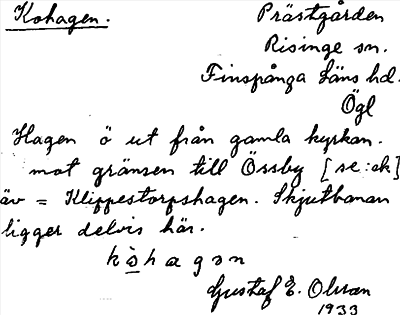 Kohagen.
Prästgården
Risinge sn.
Finspånga Läns hd.
Ögl
Hagen ö ut från gamla kyrkan.
mot gränsen till Össby [se: ek]
äv = Klippestorpshagen. Skjutbanan
ligger delvis här.
kòhagən
Gustaf E. Olsson
1933